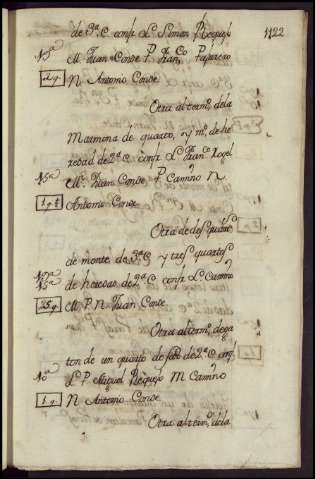 de 3ª C confr L. Simon Requejo
1122
15ª M. Juan Conde P. Franco
2 q. N Antonio Conde
Otra al termo. de la
Marmona de quarto, y mº. de he
redad de 2ª C confr L. Franco
15ª M. Juan Conde P Camino N
Antonio Conde
Otra de dos quars
de monte de 3ª C y tres quartos
de heredas de 2ª C confr L. Camino
25 q. M P N Juan Conde
Otra al termo. de ga
ton de un quarto de de 2ª C conf
10ª L. P Miguel Requejo M Camino
1 q. N Antonio Conde
Otra al termo. de la